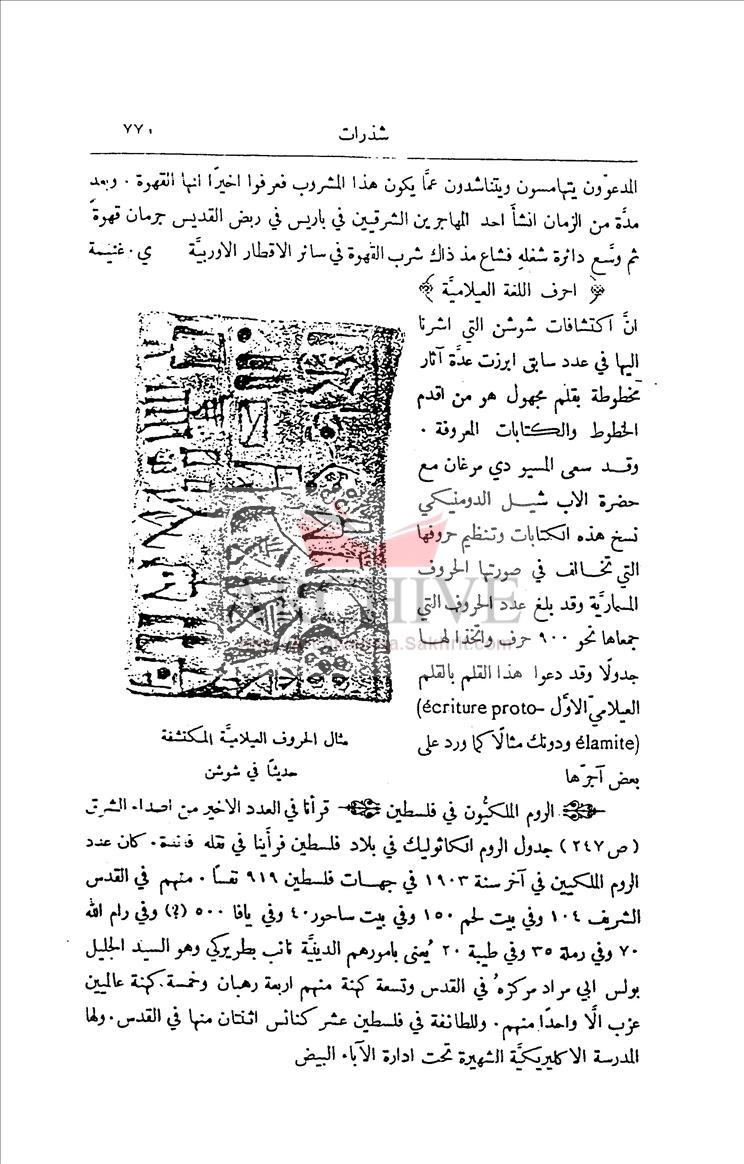 شذرات ٧٧١
المدعوّون يتهامسون ويتناشدون عمَّا يكون هذا المشروب فعرفوا اخيرًا انها القهوة . وبعد
مدَّة من الزمان انشأ احد المهاجرين الشرقيين في باريس في ربض القديس جرمان قهوةً
ثم وسَّع دائرة شغلهِ فشاع مذ ذاك شرب القهوة في سائر الاقطار الاوربيَّة ي . غنيمة
﴿ احرف اللغة العيلاميَّة ﴾
انَّ اكتشافات شوشن التي اشرنا
اليها في عدد سابق ابرزت عدَّة آثار
مخطوطة بقلم مجهول هو من اقدم
الخطوط والكتابات المعروفة .
وقد سعى المسيو دي مرغان مع
حضرة الاب شيل الدومنيكي
نسخ هذه الكتابات وتنظيم حروفها
التي تخالف في صورتها الحروف
المسماريَّة وقد بلغ عدد الحروف التي
جمعاها نحو ٩٠٠ حرف واتَّخذا لها
جدولًا وقد دعوا هذا القلم بالقلم
العيلاميّ الاوَّل (écriture proto-
élamite) ودونك مثالًا كما ورد على
بعض آجرّها
مثال الحروف العيلاميَّة المكتشفة
حديثًا في شوشن
الروم الملكيُّون في فلسطين قرأنا في العدد الاخير من اصداء الشرق
( ص ٢٤٧ ) جدول الروم الكاثوليك في بلاد فلسطين فرأينا في نقله فائدة . كان عدد
الروم الملكيين في آخر سنة ١٩٠٣ في جهات فلسطين ٩١٩ نفسًا . منهم في القدس
الشريف ١٠٤ وفي بيت لحم ١٥٠ وفي بيت ساحور ٤٠ وفي يافا ٥٠٠ (؟) وفي رام الله
٧٠ وفي رملة ٣٥ وفي طيبة ٢٠ يُعنى بامورهم الدينيَّة نائب بطريركي وهو السيد الجليل
بولس ابي مراد مركزهُ في القدس وتسعة كهنة منهم اربعة رهبان وخمسة كهنة عالميين
عزب الَّا واحدًا منهم . وللطائفة في فلسطين عشر كنائس اثنتان منها في القدس . ولها
المدرسة الاكليريكيَّة الشهيرة تحت ادارة الآباء البيض
ARCHIVE